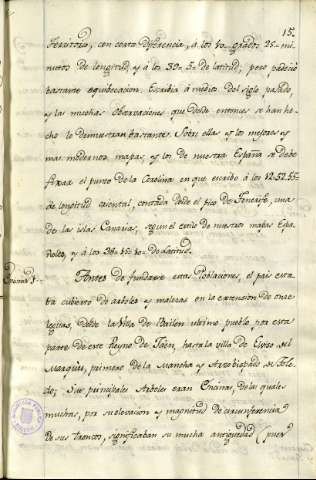 15.
Territorio, con corta diferencia, á los 40. grados 25 mi-
nutos de longitud, y á los 39. 5. de latitud; pero padeció
bastante equibocacion. Escribia á medio del siglo pasado
y las muchas observaciones que desde entonces se han he-
cho lo demuestran bastante. Sobre ellas y los mejores y
mas modernos mapas, y los de nuestra España se debe
fixar el punto de la Carolina en que escribo á los 12.52.55
de longitud oriental, contada desde el pico de Tenerife, una
de las islas Canarias, segun el estilo de nuestros mapas Espa-
ñoles, y á los de latitud.
Antes de fundarse estas Poblaciones, el pais esta-
ba cubierto de arboles y malezas en la extension de once
leguas, desde la Villa de Bailen ultimo pueblo por esta
parte de este Reyno de Jaén, hasta la villa de Viso del
Marqués, primero de la Mancha y Arzobispado de Tole-
do; Sus principales Arboles eran Encinas, de la quales
muchas, por su elevacion y magnitud de circunferencia
de sus troncos, significaban su mucha antiguedad (pues